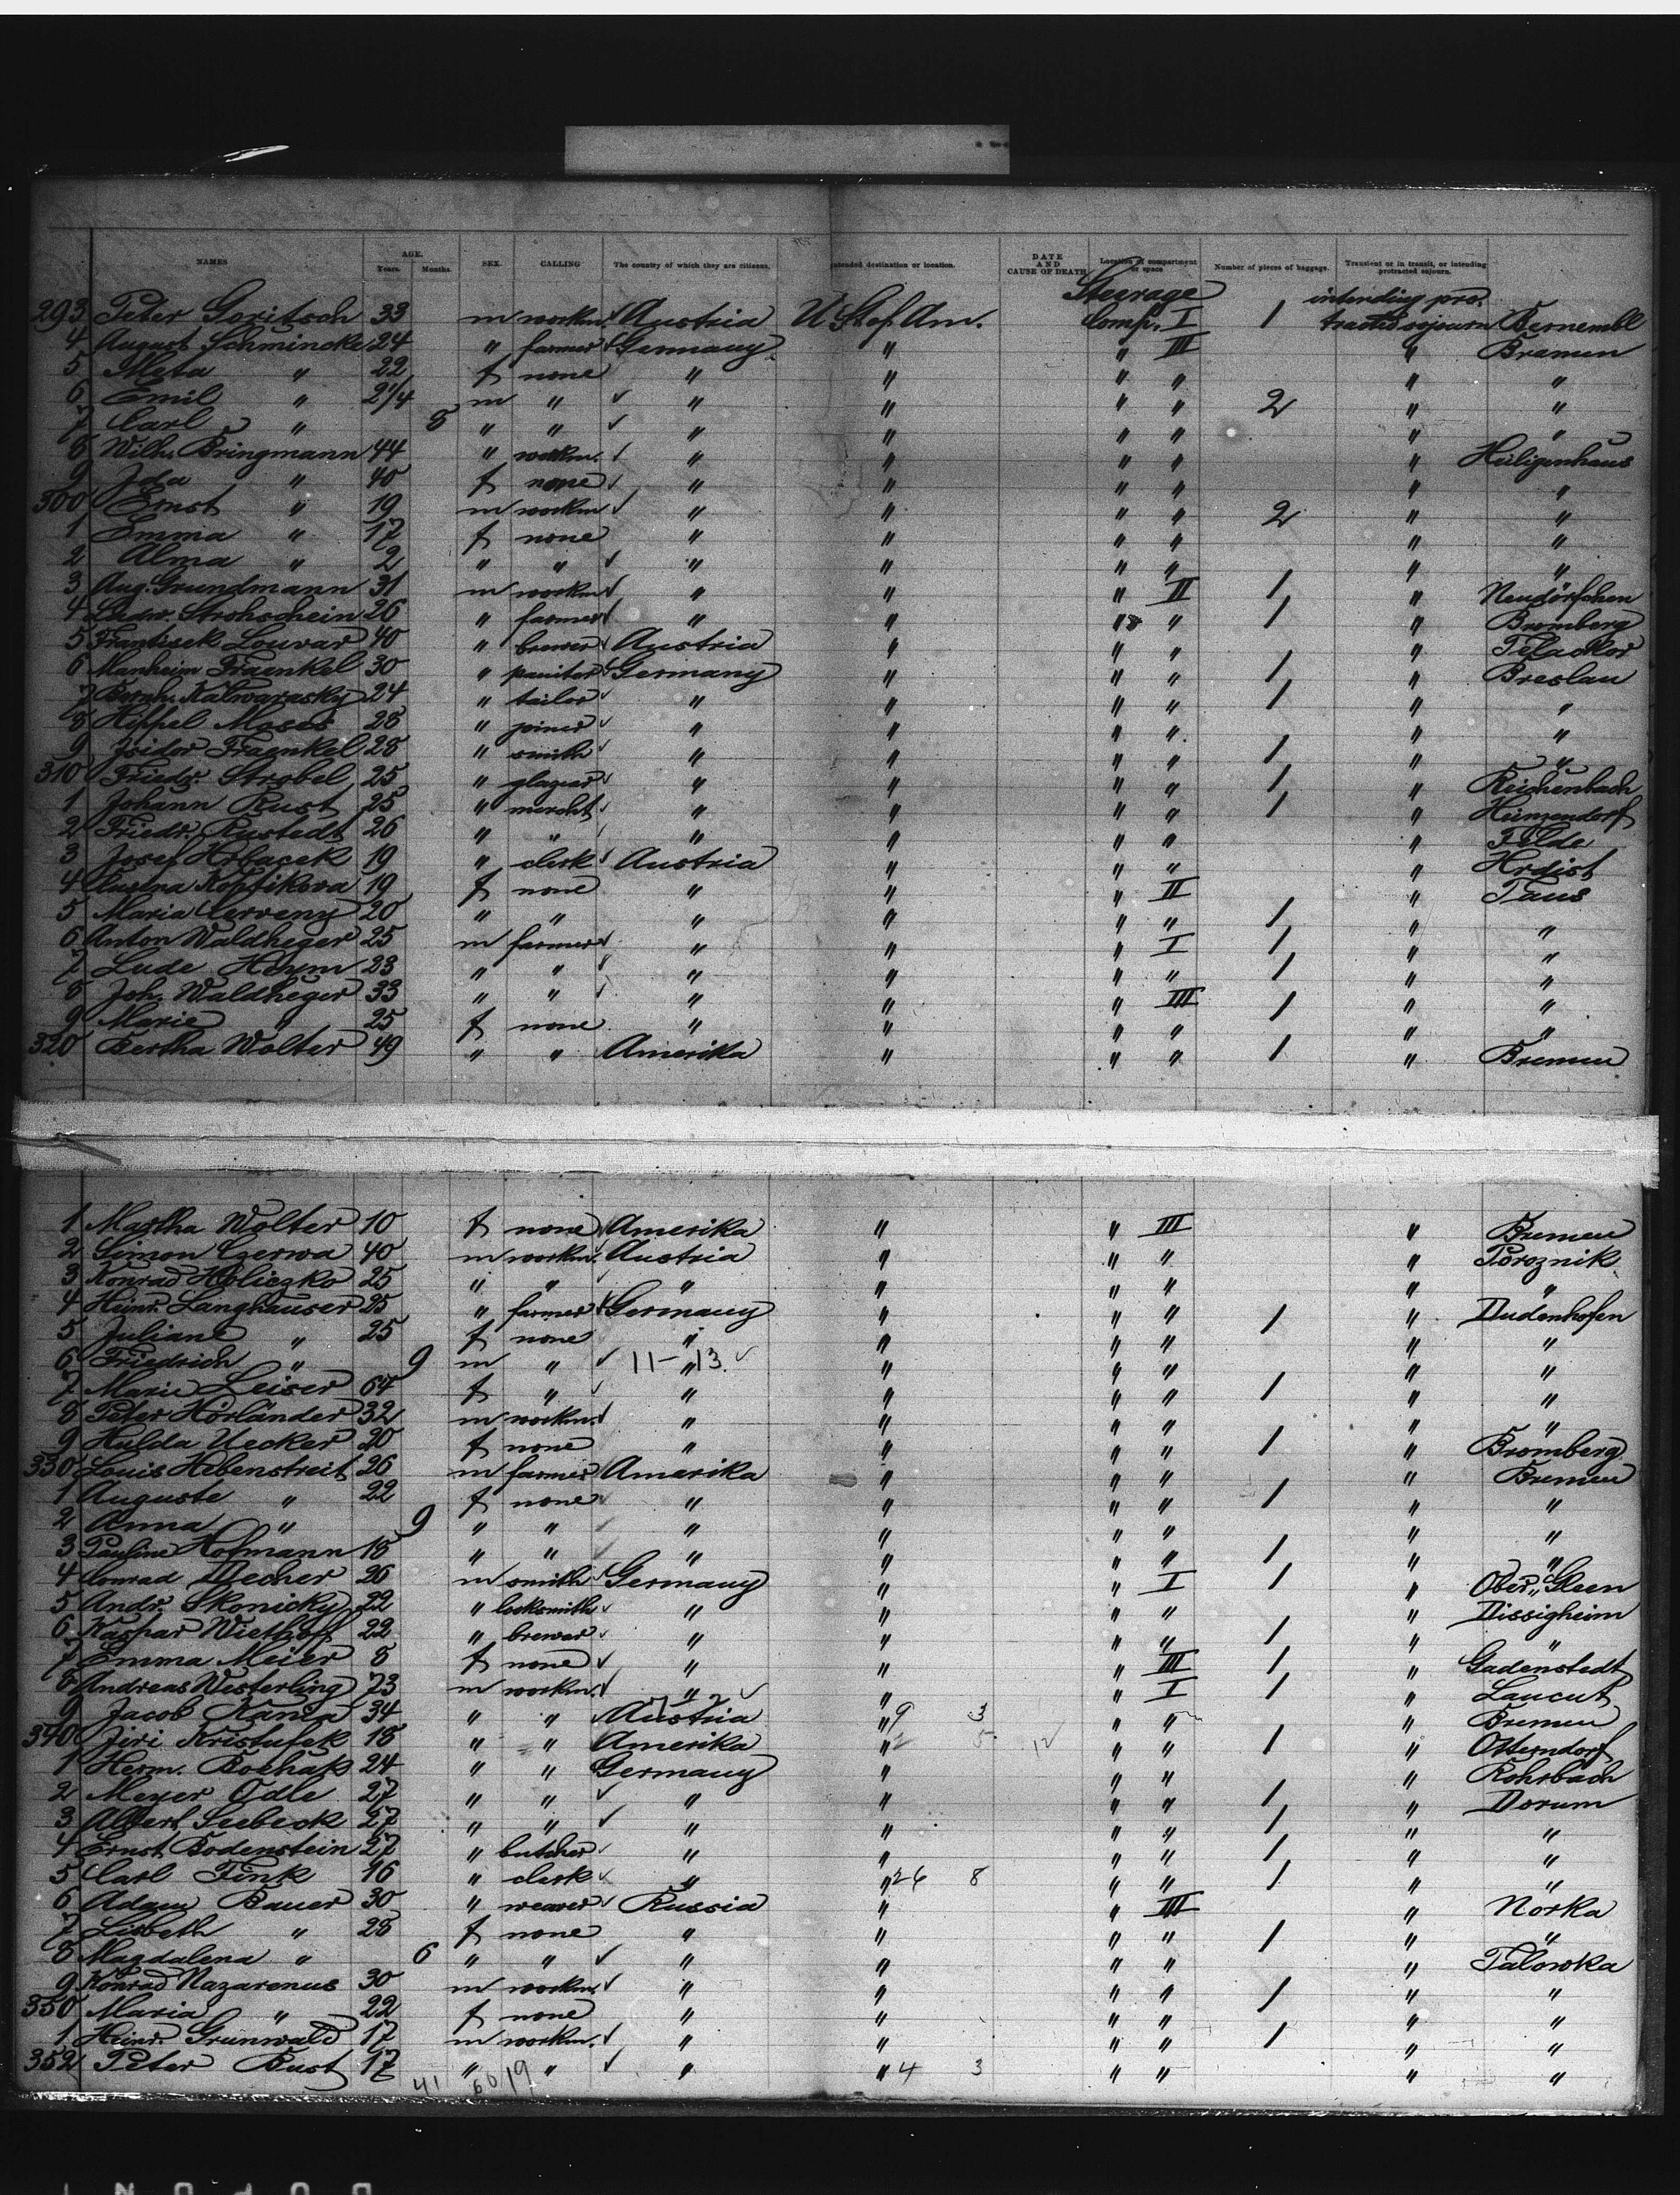 NAMES AGE. Years. Months. SEX. CALLING The country of which they are citizens. Intended destination or location. DATE AND CAUSE OF DEATH Location of compartment or space Number of pieces of baggage. Transient or in transit, or intending protracted sojourn.
Steerage intending pro-
293 Peter Goritsch 33 m workm. Austria U.St.of.Am. Comp. I 1 tracted sojourn
4 August Schmincke 24 " farmer Germany " " III " Bremen
5 Meta " 22 f none " " " " " "
6 Emil " 2 1/4 m " " " " " 2 " "
7 Carl " 8 " " " " " " " "
8 Wilh. Bringmann 44 " workm. " " " " " Heiligenhaus
9 Ida " 40 f none " " " " " "
300 Ernst " 19 m workm " " " " 2 " "
1 Emma " 17 f none " " " " " "
2 Alma " 2 " " " " " " " "
3 Aug. Grundmann 31 m workm " " " II 1 " Neudörfchen
4 Ludw. Strohschein 26 " farmer " " " " 1 " Bromberg
5 Frantisek Louvar 40 " brewer Austria " " " "
6 Manheim Fraenkel 30 " painter Germany " " " 1 " Breslau
7 Bernh. Kalwarasky 24 " tailor " " " " 1 " "
8 Heppel Moses 28 " joiner " " " " " "
9 Isidor Fraenkel 28 " smith " " " " 1 " "
310 Friedr. Strobel 25 " glazier " " " " 1 " Reichenbach
1 Johann Rust 25 " mercht " " " " 1 " Hunzendorf
2 Friedr. Rustedt 26 " " " " " " " Felde
3 Josef Hrbacek 19 " clerk Austria " " " " Hrdist
4 Koptikova 19 f none " " " II " Taus
5 Maria Cerveny 20 " " " " " " 1 " "
6 Anton Waldheger 25 m farmer " " " I 1 " "
7 Lude Heym 23 " " " " " " 1 " "
8 Joh. Waldheger 33 " " " " " III 1 " "
9 Marie " 25 f none " " " " " "
320 Bertha Wolter 49 " " Amerika " " " 1 " Bremen
1 Martha Wolter 10 f none Amerika " " III " Bremen
2 Simon Czerwa 40 m workm. Austria " " " " Poroznik
3 Konrad Holiczko 25 " " " " " " " "
4 Heinr. Langhauser 25 " farmer Germany " " " 1 " Dudenhofen
5 Juliane " 25 f none " " " " " "
6 Friedrich " 9 m " 11-13 " " " " " "
7 Marie Leiser 64 f " " " " " 1 " "
8 Peter Horländer 32 m workm. " " " " " "
9 Hulda Uecker 20 f none " " " " 1 " Bromberg
330 Louis Hebenstreit 26 m farmer Amerika " " " " Bremen
1 Auguste " 22 f none " " " " 1 " "
2 Anna " 9 " " " " " " " "
3 Pauline Hofmann 18 " " " " " " 1 " "
4 Conrad Decher 26 m smith Germany " " I 1 " Ober-Gleen
5 Andr. Skonicky 22 " locksmith " " " " " Dissigheim
6 Kaspar Wiethoff 22 " brewer " " " " 1 " "
7 Emma Meier 8 f none " " " III 1 " Gadenstedt
8 Andreas Westerling 23 m workm. " " " I 1 " Lancut
9 Jacob Kania 34 " " Austria " 9 3 " " " Bremen
340 Jiri Kristufek 18 " " Amerika " 2 5 12 " " 1 " Otterndorf
1 Herm. Bochak 24 " " Germany " " " " Rohrbach
2 Meyer Odle 27 " " " " " " 1 " Dorum
3 Albert Seebeck 27 " " " " " " 1 " "
4 Ernst Bodenstein 27 " butcher " " " " 1 " "
5 Carl Fink 16 " clerk " " 26 8 " " 1 " "
6 Adam Bauer 30 " weaver Russia " " III " Norka
7 Lisbeth " 28 f none " " " " 1 " "
8 Magdalena " 6 " " " " " " " Talowka
9 Konrad Nazarenus 30 m workm. " " " " 1 " "
350 Maria " 22 f none " " " " " "
1 Heinr. Grunwald 17 m workm. " " " " 1 " "
352 Peter Bust 17 " " " " 4 3 " " " "
41 60 19